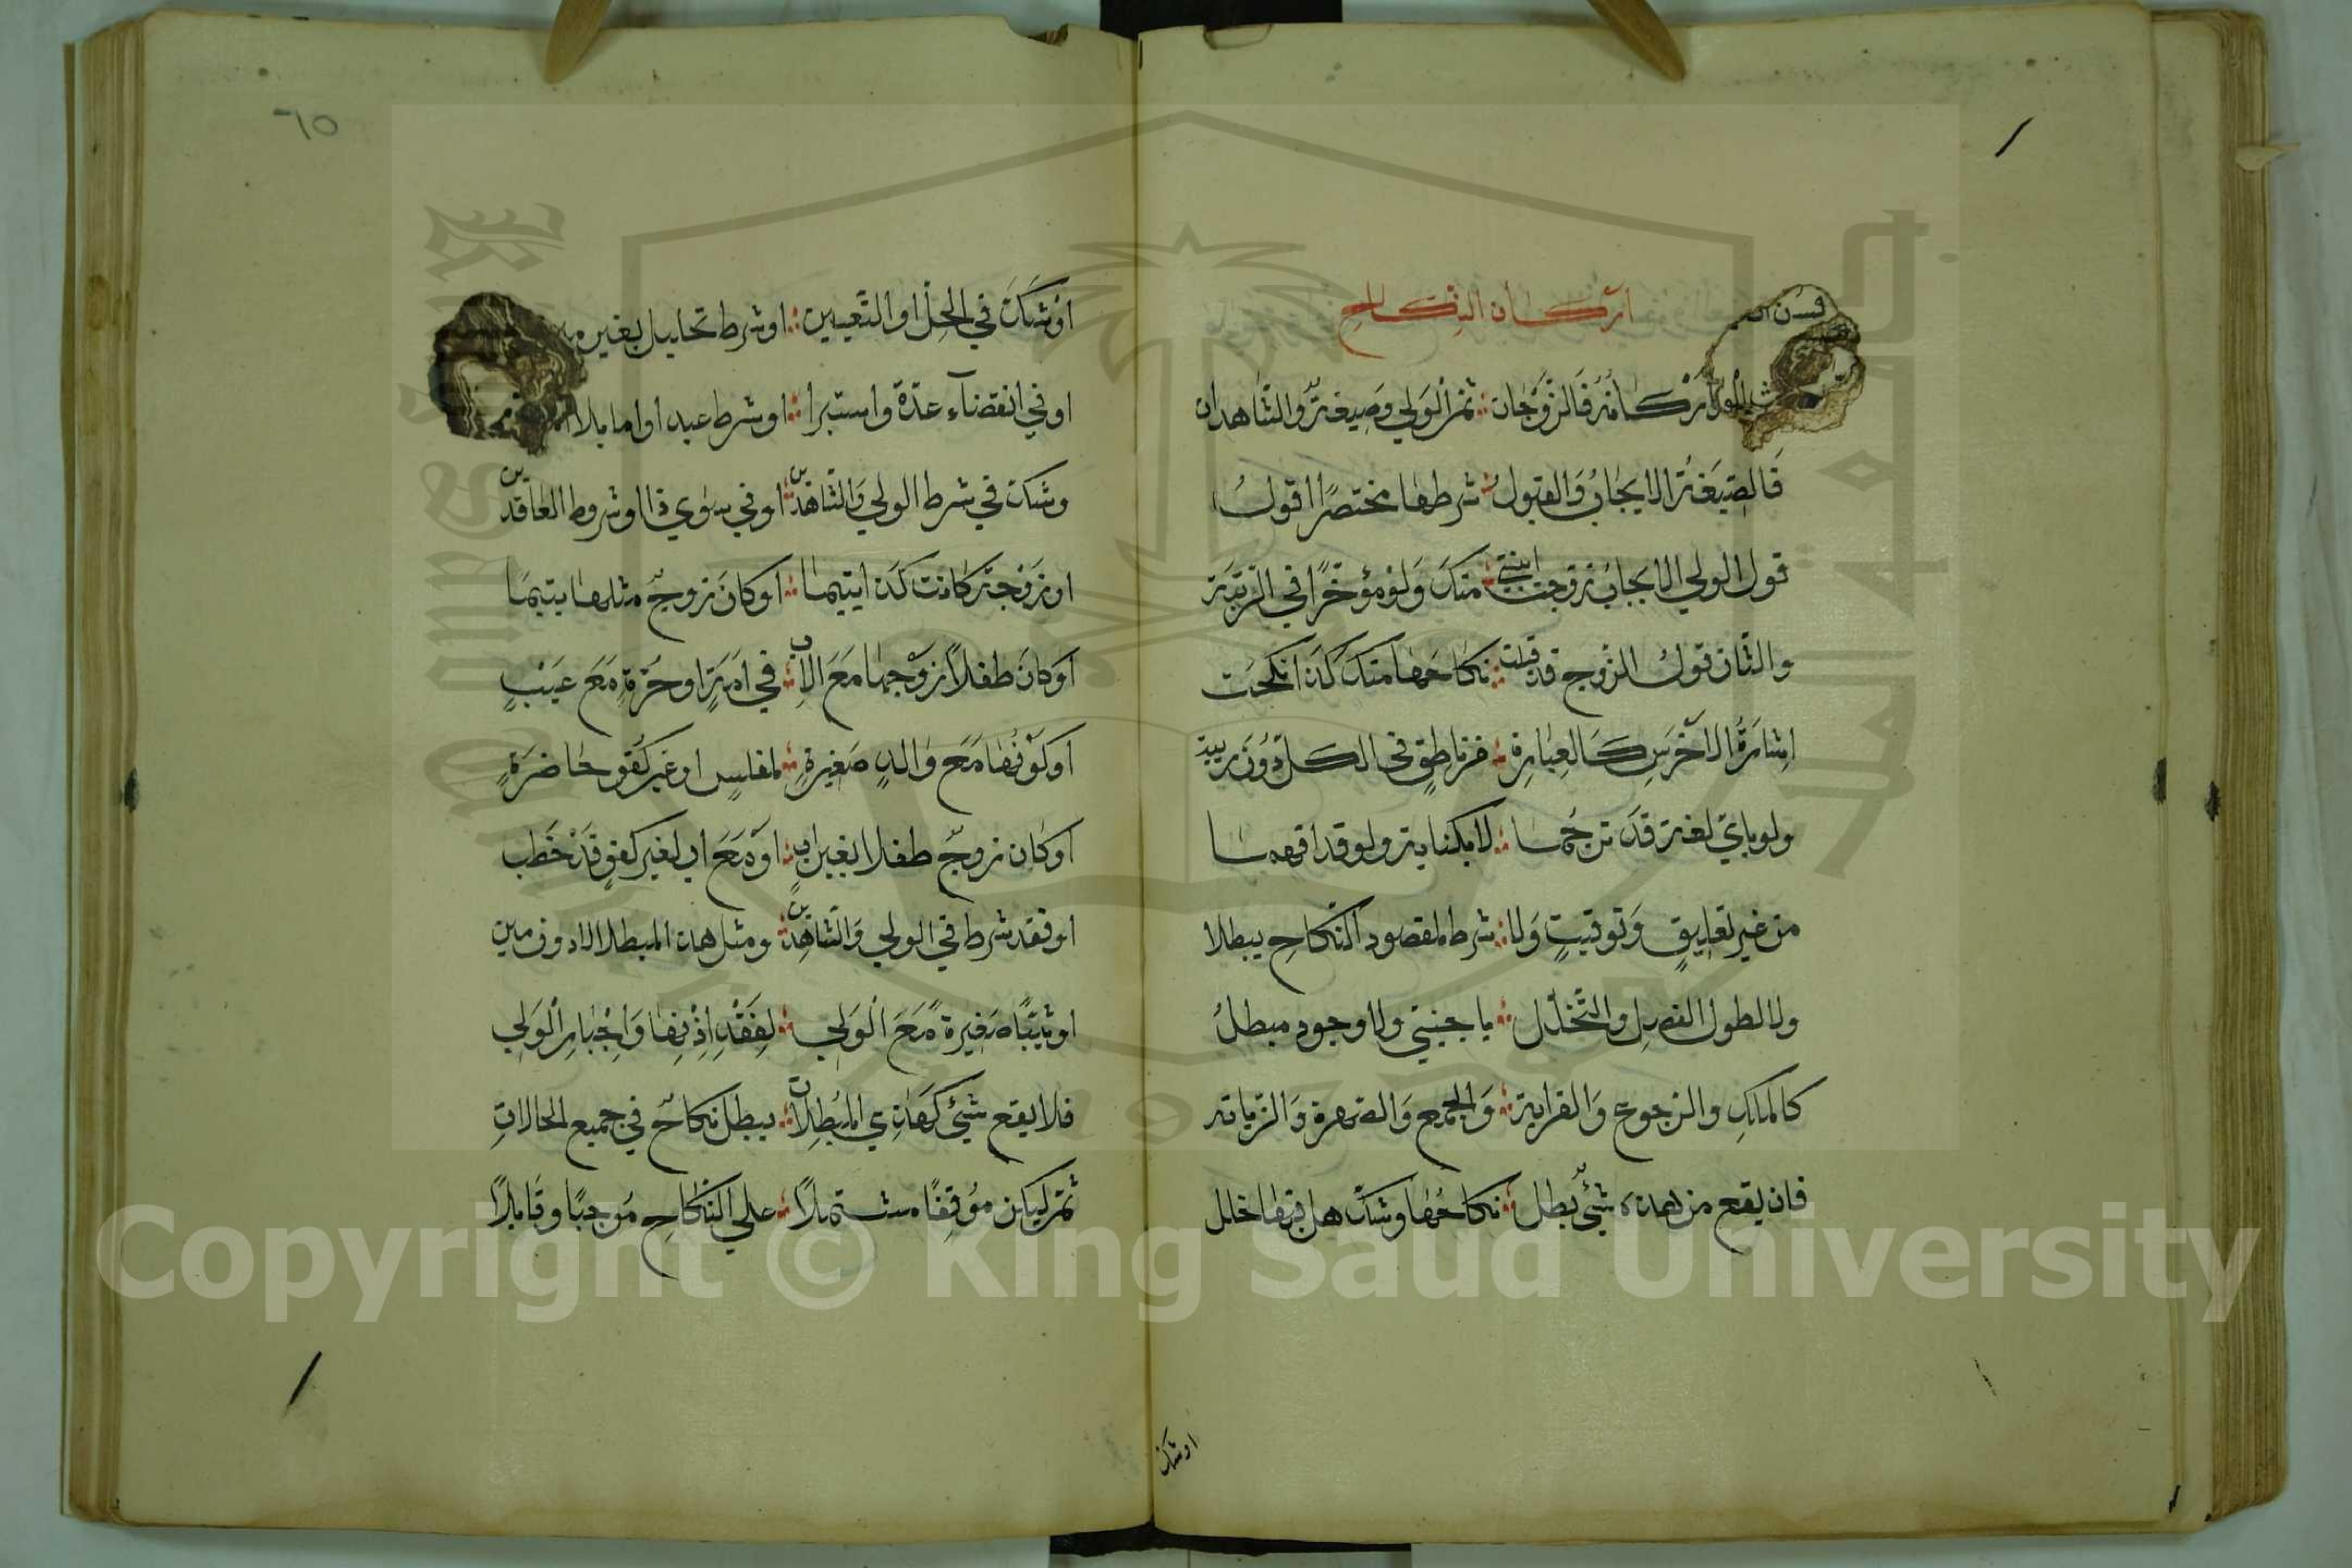 اركان النكاح
اركانه فالزوجان ثم الولي وصيغة والشاهدان
فالصيغة الايجاب والقبول شرطها مختصرا اقول
قول الولي الايجاب زوجت ابنتي منك ولو مؤخرا في الرتبة
والثان قول الزوج قد قبلت نكاحها منك كذا انكحت
اشارة الاخرس كالعبارة من ناطق في الكل دون ريبة
ولو باي لغة قد ترجما لا بكناية ولو قد افهما
من غير تعليق وتوقيت ولا شرط لمقصود النكاح يبطلا
ولا لطول الفصل والتخلل باجنبي ولا وجود مبطل
كالملك والرجوع والقرابة والجمع والصهرة والزيادة
فان يقع من هذه شيئ بطل نكاحها وشك هل فيها خلل
اوشك
٦٥
اوشك في الحل او التعيين اوشرط تحليل بغير
او في انقضاء عدة واستبرا اوشرط عبد او اما بلا
وشك في شرط الولي والشاهدين او في سوي ذا اوشروط العاقدين
او زوجة كانت كذا يتيما او كان زوج مثلها يتيما
او كان طفلا زوجها مع الاب في امة او حرة مع عيب
او كونها مع والد صغيرة لمفلس او غير كفو حاضرة
او كان زوج طفلا بغير اب او مع اب لغير كفو قد خطب
او فقد شرط في الولي والشاهدين ومثل هذا المبطلا الاد ون مين
او ثيبا صغيرة مع الولي لفقد اذنها واجبار الولي
فلا يقع شيئ كهذي المبطلات يبطل نكاح في جميع الحالات
ثم ليكن موقفا مشتملا علي النكاح موجبا وقابلا
Copyright © King Saud University